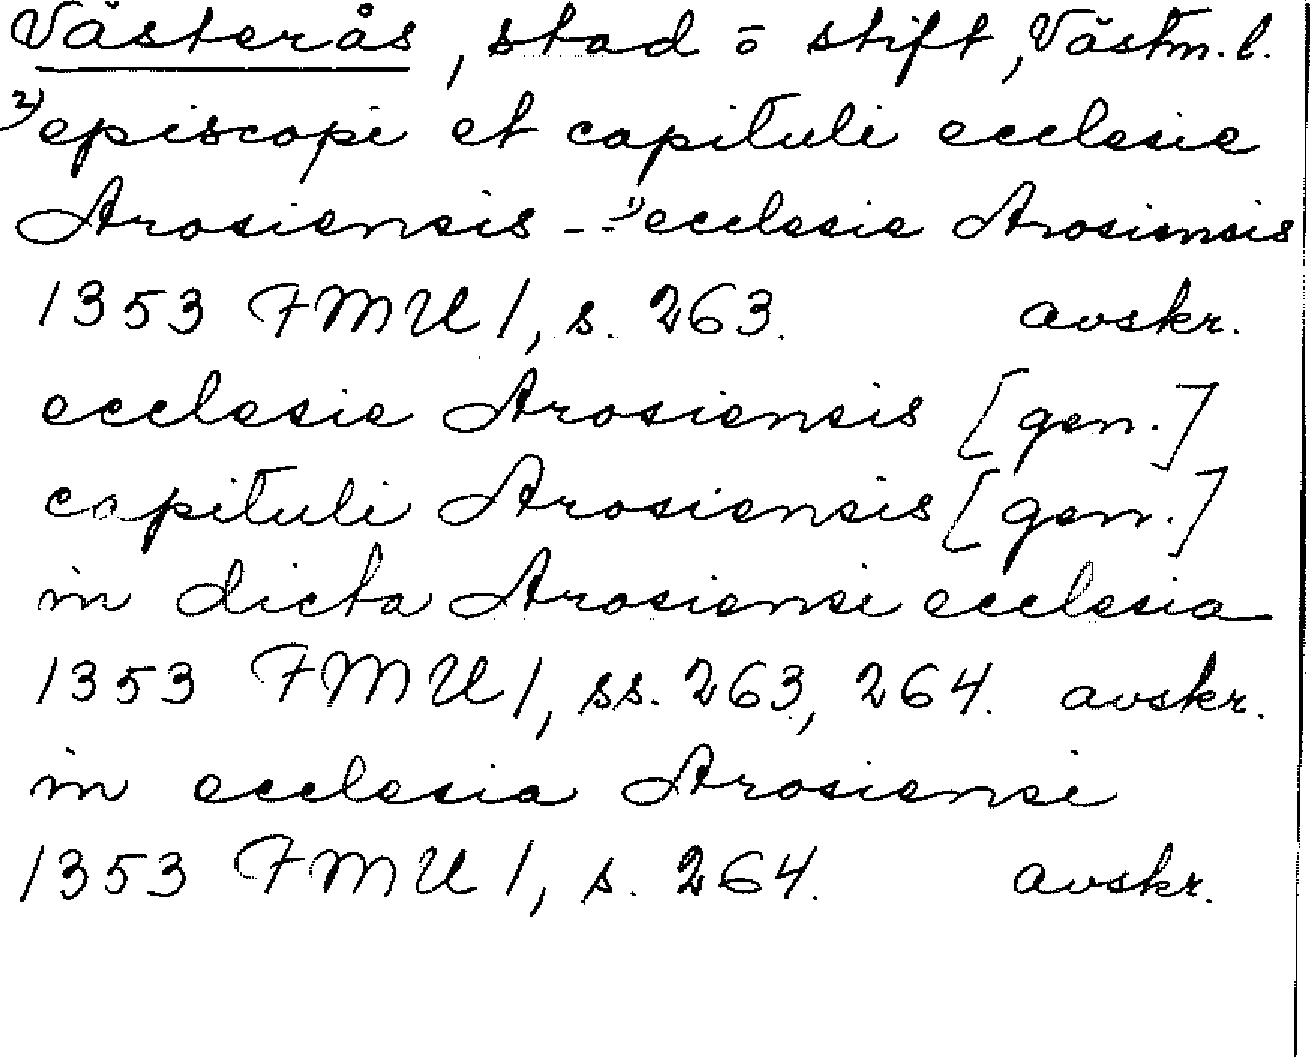 Västerås, stad o stift, Västm. l.
2) episcopi et capituli ecclesie
Arosiensis - - 1) ecclesie Arosiensis
1353 FMU 1, s. 263. avskr.
ecclesie Arosiensis [gen.]
capituli Arosiensis [gen.]
in dicta Arosiensi ecclesia
1353 FMU 1, ss. 263, 264. avskr.
in ecclesia Arosiensi
1353 FMU 1, s. 264. avskr.